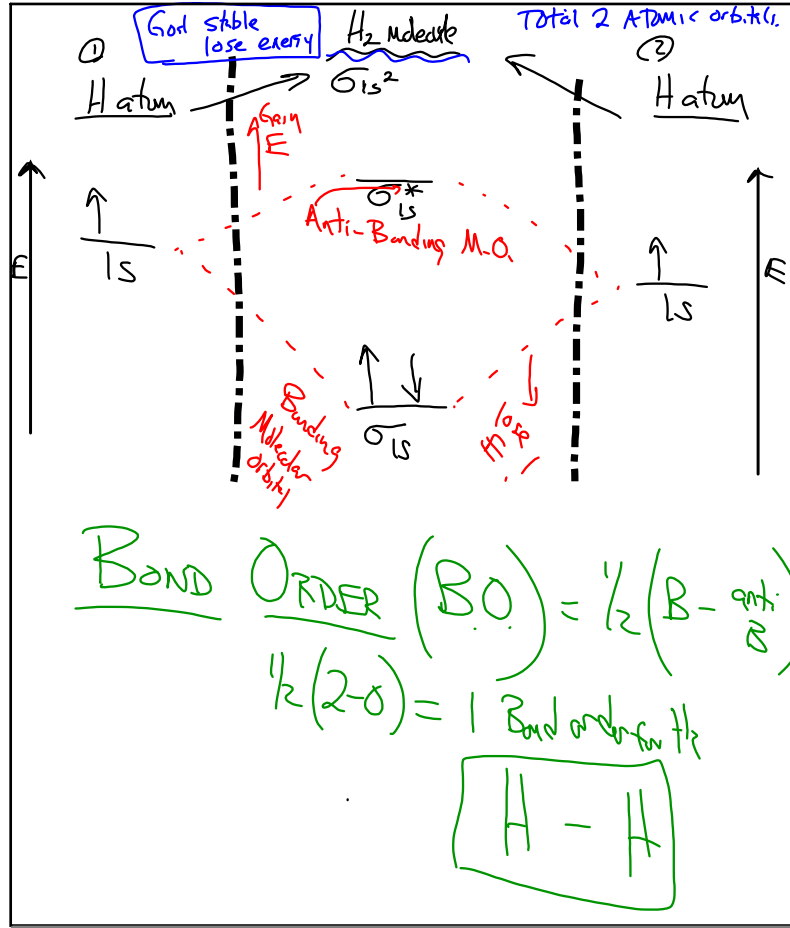 God stable
lose energy
H₂ molecule
Total 2 Atomic orbitals.
①
②
H atom
σ1s²
H atom
Gain
E
σ*1s
Anti-Bonding M.O.
1s
1s
E
E
σ1s
Bonding
Molecular
orbital
lose
BOND ORDER (B.O.) = 1/2 (B - anti B)
1/2 (2-0) = 1 Bond order for H₂
H - H